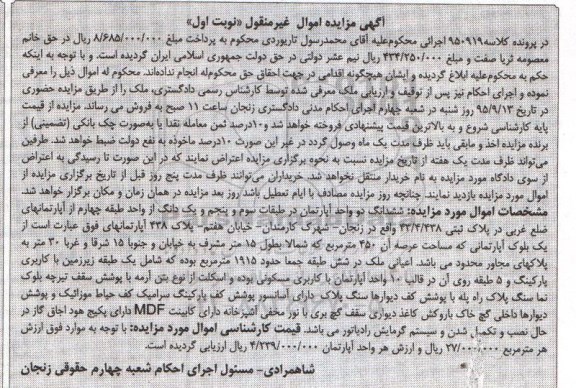 آگهی مزایده اموال غیرمنقول «نوبت اول»
در پرونده کلاسه ۹۵۰۹۱۹ اجرائی محکوم‌علیه آقای محمدرسول تاریوردی محکوم به پرداخت مبلغ ۸/۶۸۵/۰۰۰/۰۰۰ ریال در حق خانم
معصومه ثریا صفت و مبلغ ۴۳۴/۲۵۰/۰۰۰ ریال نیم عشر دولتی در حق دولت جمهوری اسلامی ایران گردیده است. و با توجه به اینکه
حکم به محکوم‌علیه ابلاغ گردیده و ایشان هیچگونه اقدامی در جهت احقاق حق محکوم‌له انجام نداده‌اند. محکوم له اموال ذیل را معرفی
نموده و اجرای احکام نیز پس از توقیف و ارزیابی ملک معرفی شده توسط کارشناس رسمی دادگستری، ملک را از طریق مزایده حضوری
در تاریخ ۹۵/۹/۱۳ روز شنبه در شعبه چهارم اجرای احکام مدنی دادگستری زنجان ساعت ۱۱ صبح به فروش می رساند. مزایده از قیمت
پایه کارشناسی شروع و به بالاترین قیمت پیشنهادی فروخته خواهد شد و ۱۰درصد ثمن معامله نقدا یا به‌صورت چک بانکی (تضمینی) از
برنده مزایده اخذ و مابقی باید ظرف مدت یک ماه وصول گردد در غیر این صورت ۱۰درصد ماخوذه به نفع دولت ضبط خواهد شد. طرفین
می‌تواند ظرف مدت یک هفته از تاریخ مزایده نسبت به نحوه برگزاری مزایده اعتراض نمایند که در این صورت تا رسیدگی به اعتراض
از سوی دادگاه مورد مزایده به نام خریدار منتقل نخواهد شد. خریداران می‌توانند ظرف مدت پنج روز قبل از تاریخ برگزاری مزایده از
اموال مورد مزایده بازدید نمایند. چنانچه روز مزایده مصادف با ایام تعطیل باشد روز بعد مزایده در همان زمان و مکان برگزار خواهد شد.
مشخصات اموال مورد مزایده: ششدانگ دو واحد آپارتمان در طبقات سوم و پنجم و یک دانگ از واحد طبقه چهارم از آپارتمانهای
ضلع غربی در پلاک ثبتی ۴۳/۴/۴۳۸ واقع در زنجان- شهرک کارمندان- خیابان هفتم- پلاک ۴۳۸ آپارتمانهای فوق عبارت است از
یک بلوک آپارتمانی که مساحت عرصه آن ۴۵۰ مترمربع که شمالا بطول ۱۵ متر مشرف به خیابان و جنوبا ۱۵ شرقا و غربا ۳۰ متر به
پلاکهای مجاور محدود می باشد. اعیانی ملک در شش طبقه جمعا حدود ۱۹۱۵ مترمربع بوده که شامل یک طبقه زیرزمین با کاربری
پارکینگ و ۵ طبقه روی آن در قالب ۱۰ واحد آپارتمان با کاربری مسکونی بوده و اسکلت از نوع بتن آرمه با پوشش سقف تیرچه بلوک
نما سنگ پلاک راه پله با پوشش کف دیوارها سنگ پلاک دارای آسانسور پوشش کف پارکینگ سرامیک کف حیاط موزائیک و پوشش
دیوارها داخلی گچ خاک باروکش کاغذ دیواری سقف گچ بری با نور مخفی آشپزخانه دارای کابینت MDF دارای پکیج هود اجاق گاز در
حال نصب و تکمیل شدن و سیستم گرمایش رادیاتور می باشد. قیمت کارشناسی اموال مورد مزایده: با توجه به موارد فوق ارزش
هر مترمربع ۲۷/۰۰۰/۰۰۰ ریال و ارزش هر واحد آپارتمان ۴/۲۳۹/۰۰۰/۰۰۰ ریال ارزیابی گردیده است.
شاهمرادی- مسئول اجرای احکام شعبه چهارم حقوقی زنجان